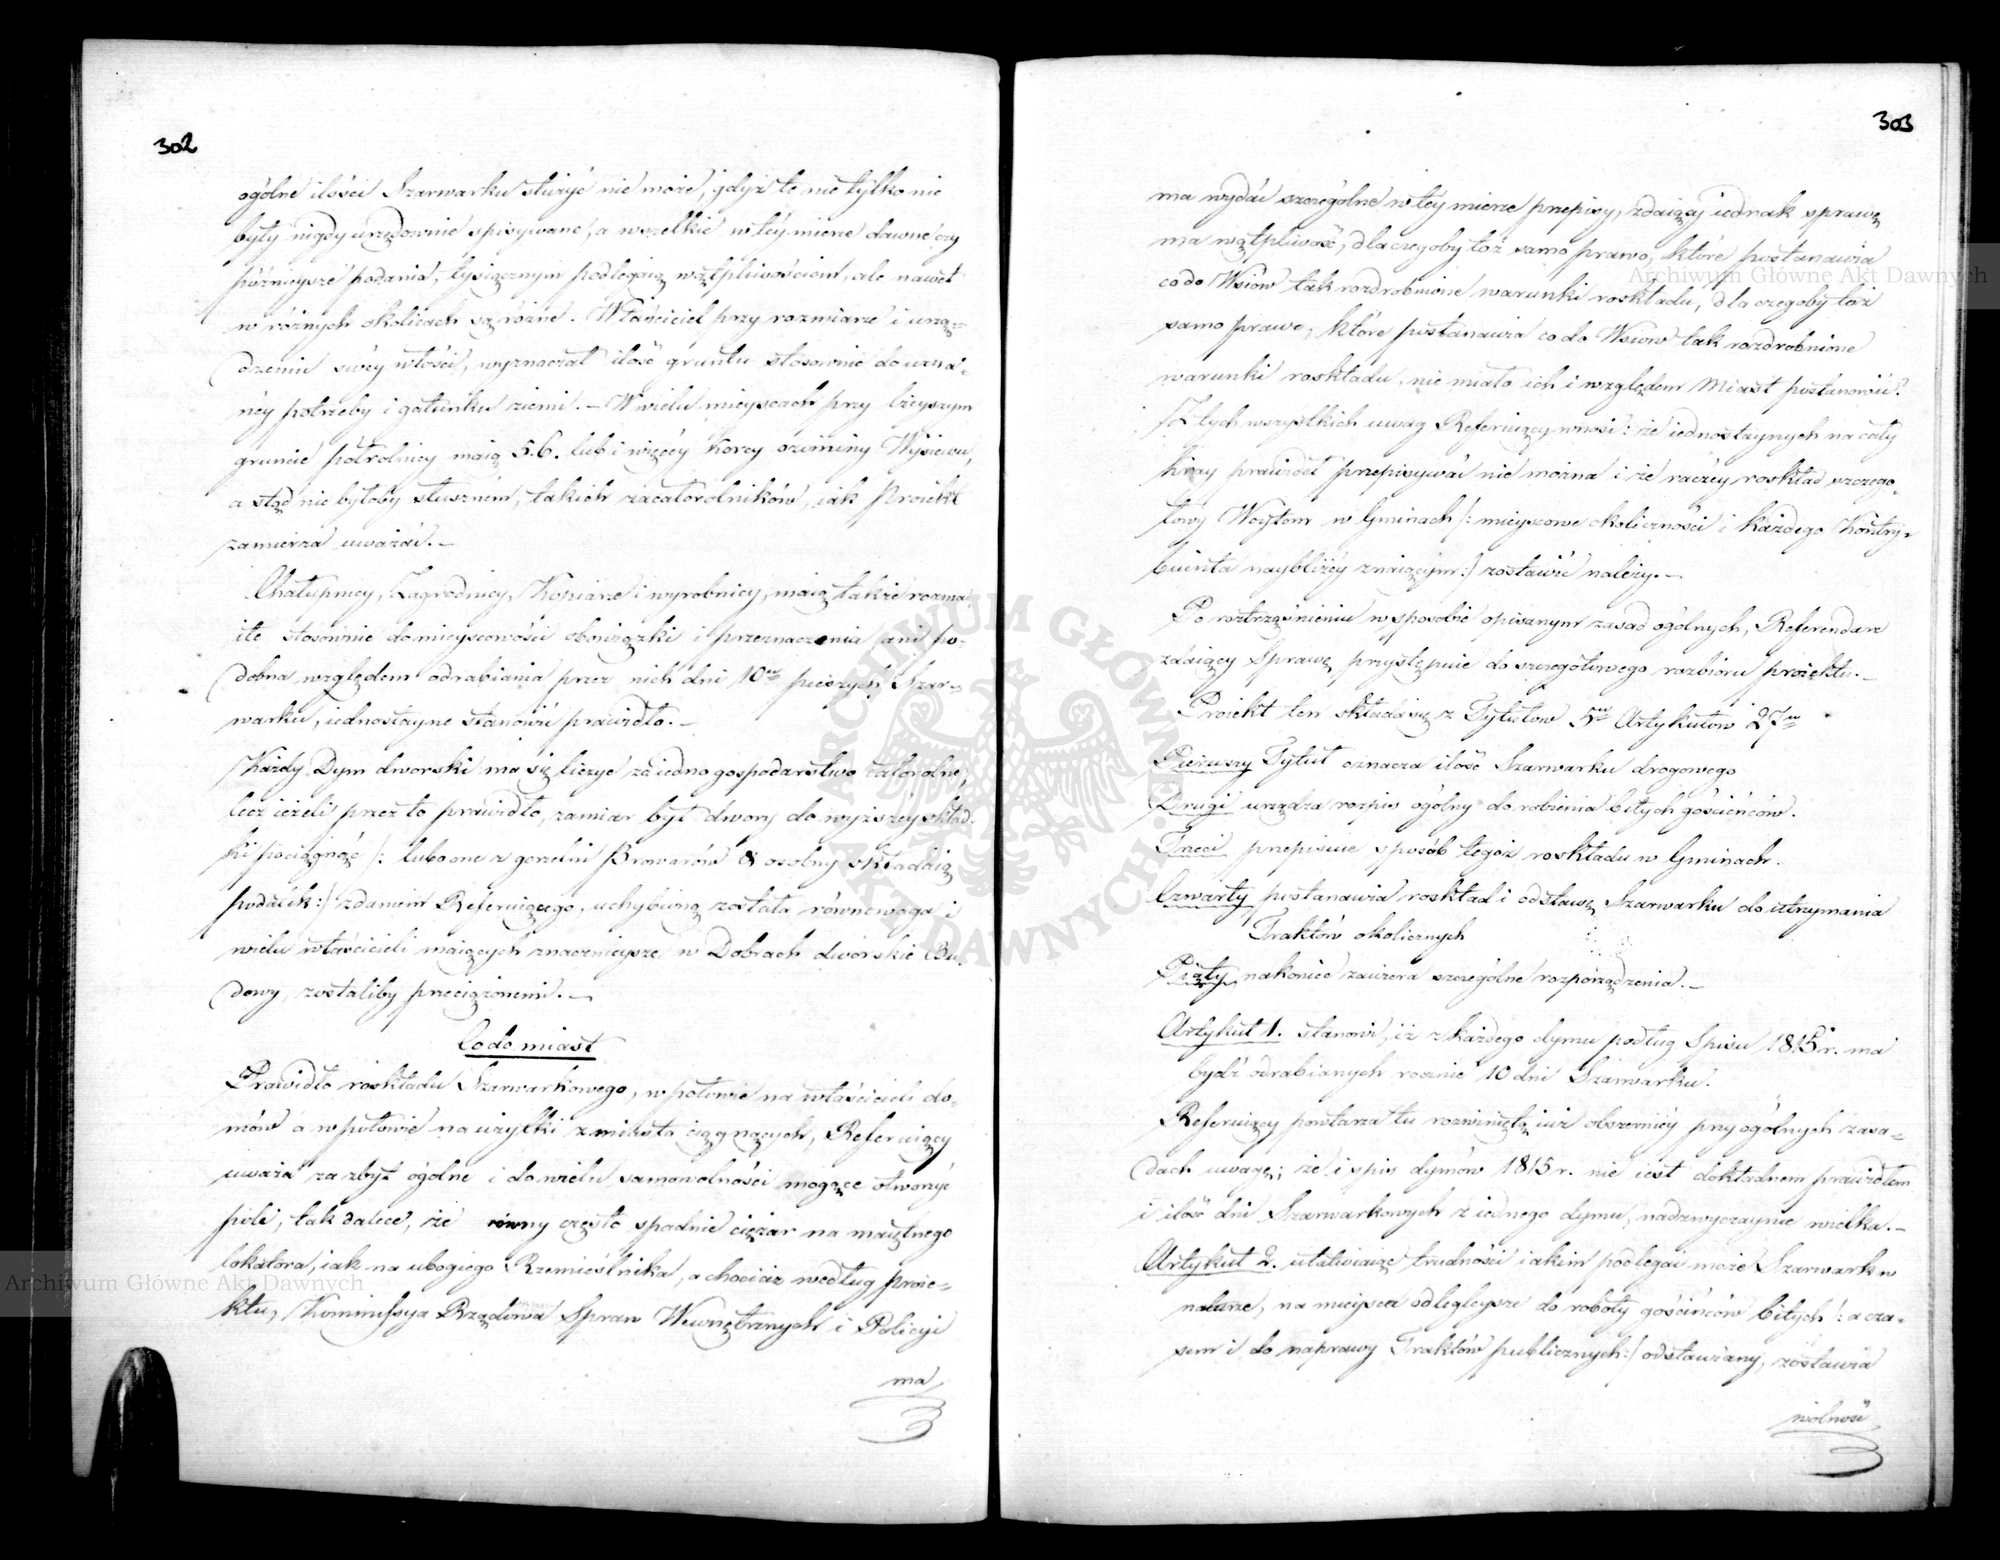 302
ogólne ilości Szarwarku służyć nie może, gdyż te nie tylko nie
były nigdy urzędownie spisywane, a wszelkie w tey mierze dawne czy
późnieysze podania, tysiącznym podlegaią wątpliwościom, ale nawet
w różnych okolicach są różne. Właściciel przy rozmiarze i urzą-
dzeniu swey włości, wyznaczał ilość gruntu stosownie do uzna-
ney potrzeby i gatunku ziemi. – W wielu mieyscach przy lżeyszym
gruncie półrolnicy maią 5. 6. lub i więcéy Korcy oziminy Wysiewu,
a stąd nie byłoby słusznem, takich za całorolników, iak Proiekt
zamierza uważać. –
Chałupnicy, Zagrodnicy, Kopiarze i wyrobnicy, maią także rozma-
ite stosownie do mieyscowości obowiązki i przeznaczenia ani po-
dobna względem odrabiania przez nich dni 10ciu pieszych Szar-
warku, iednostayne stanowić prawidło. –
Każdy Dym dworski ma się liczyć za iedno gospodarstwo całorolne,
lecz ieżeli przez to prawidło, zamiar był dwory do wyższey skład-
ki pociągnąć /: lubo one z gorzelni Browarów & osobny składaią
podatek :/ zdaniem Referuiącego, uchybioną została równowaga i
wielu właścicieli maiących znacznieysze w Dobrach dworskie Bu-
dowy, zostaliby przeciążonemi. –
Co do miast
Prawidło rozkładu Szarwarkowego, w połowie na właścicieli do-
mów a w połowie na użytki z miasta ciągnących, Referuiący
uważa za zbyt ogólne i do wielu samowolności mogące otworzyć
pole, tak dalece, że równy często spadnie ciężar na maiętnego
lokatora, iak na ubogiego Rzemieślnika, a chociaż według proie-
ktu, Kommissya Rządowa Spraw Wewnętrznych i Policyi
ma
303
ma wydać szczególne w tey mierze przepisy, zdaiący iednak sprawę
ma wątpliwość, dla czegoby toż samo prawo, które postanawia
co do Wsiów tak rozdrobnione warunki rozkładu, dla czegoby toż
samo prawo, które postanawia co do Wsiów tak rozdrobnione
warunki rozkładu, nie miało ich i względem Miast postanowić?
Z tych wszystkich uwag Referuiący wnosi: że iednostaynych na cały
Kray prawideł przepisywać nie można i że raczey rozkład szczegó-
łowy Woytom w Gminach /: mieyscowe okoliczności i każdego Kontry-
buenta naybliżey znaiącym :/ zostawić należy. –
Po roztrząśnieniu w sposobie opisanym zasad ogólnych, Referendarz
zdaiący Sprawę, przystępuie do szczegółowego rozbioru proiektu. –
Proiekt ten składa się z Tytułów 5ciu Artykułów 27u
Pierwszy Tytuł oznacza ilość Szarwarku drogowego
Drugi urządza rozpis ogólny do robienia bitych gościńców.
Trzeci przepisuie sposób tegoż rozkładu w Gminach.
Czwarty postanawia rozkład i odstawę Szarwarku do utrzymania
Traktów okolicznych
Piąty nakoniec zawiera szczególne rozporządzenia. –
Artykuł 1. stanowi, iż z każdego dymu podług Spisu 1815 r. ma
bydź odrabianych rocznie 10 dni Szarwarku.
Referuiący powtarza tu rozwiniętą iuż obszerniey przy ogólnych zasa-
dach uwagę; że i spis dymów 1815 r. nie iest dokładnem prawidłem
i ilość dni Szarwarkowych z iednego dymu, nadzwyczaynie wielka. –
Artykuł 2. ułatwiaiąc trudności iakim podlegać może Szarwark w
naturze, na mieysca odlegleysze do roboty gościńców bitych /: a cza-
sem i do naprawy Traktów publicznych :/ odstawiany, zostawia
wolność
Archiwum Główne Akt Dawnych
Archiwum Główne Akt Dawnych
ARCHIWUM GŁÓWNE AKT DAWNYCH